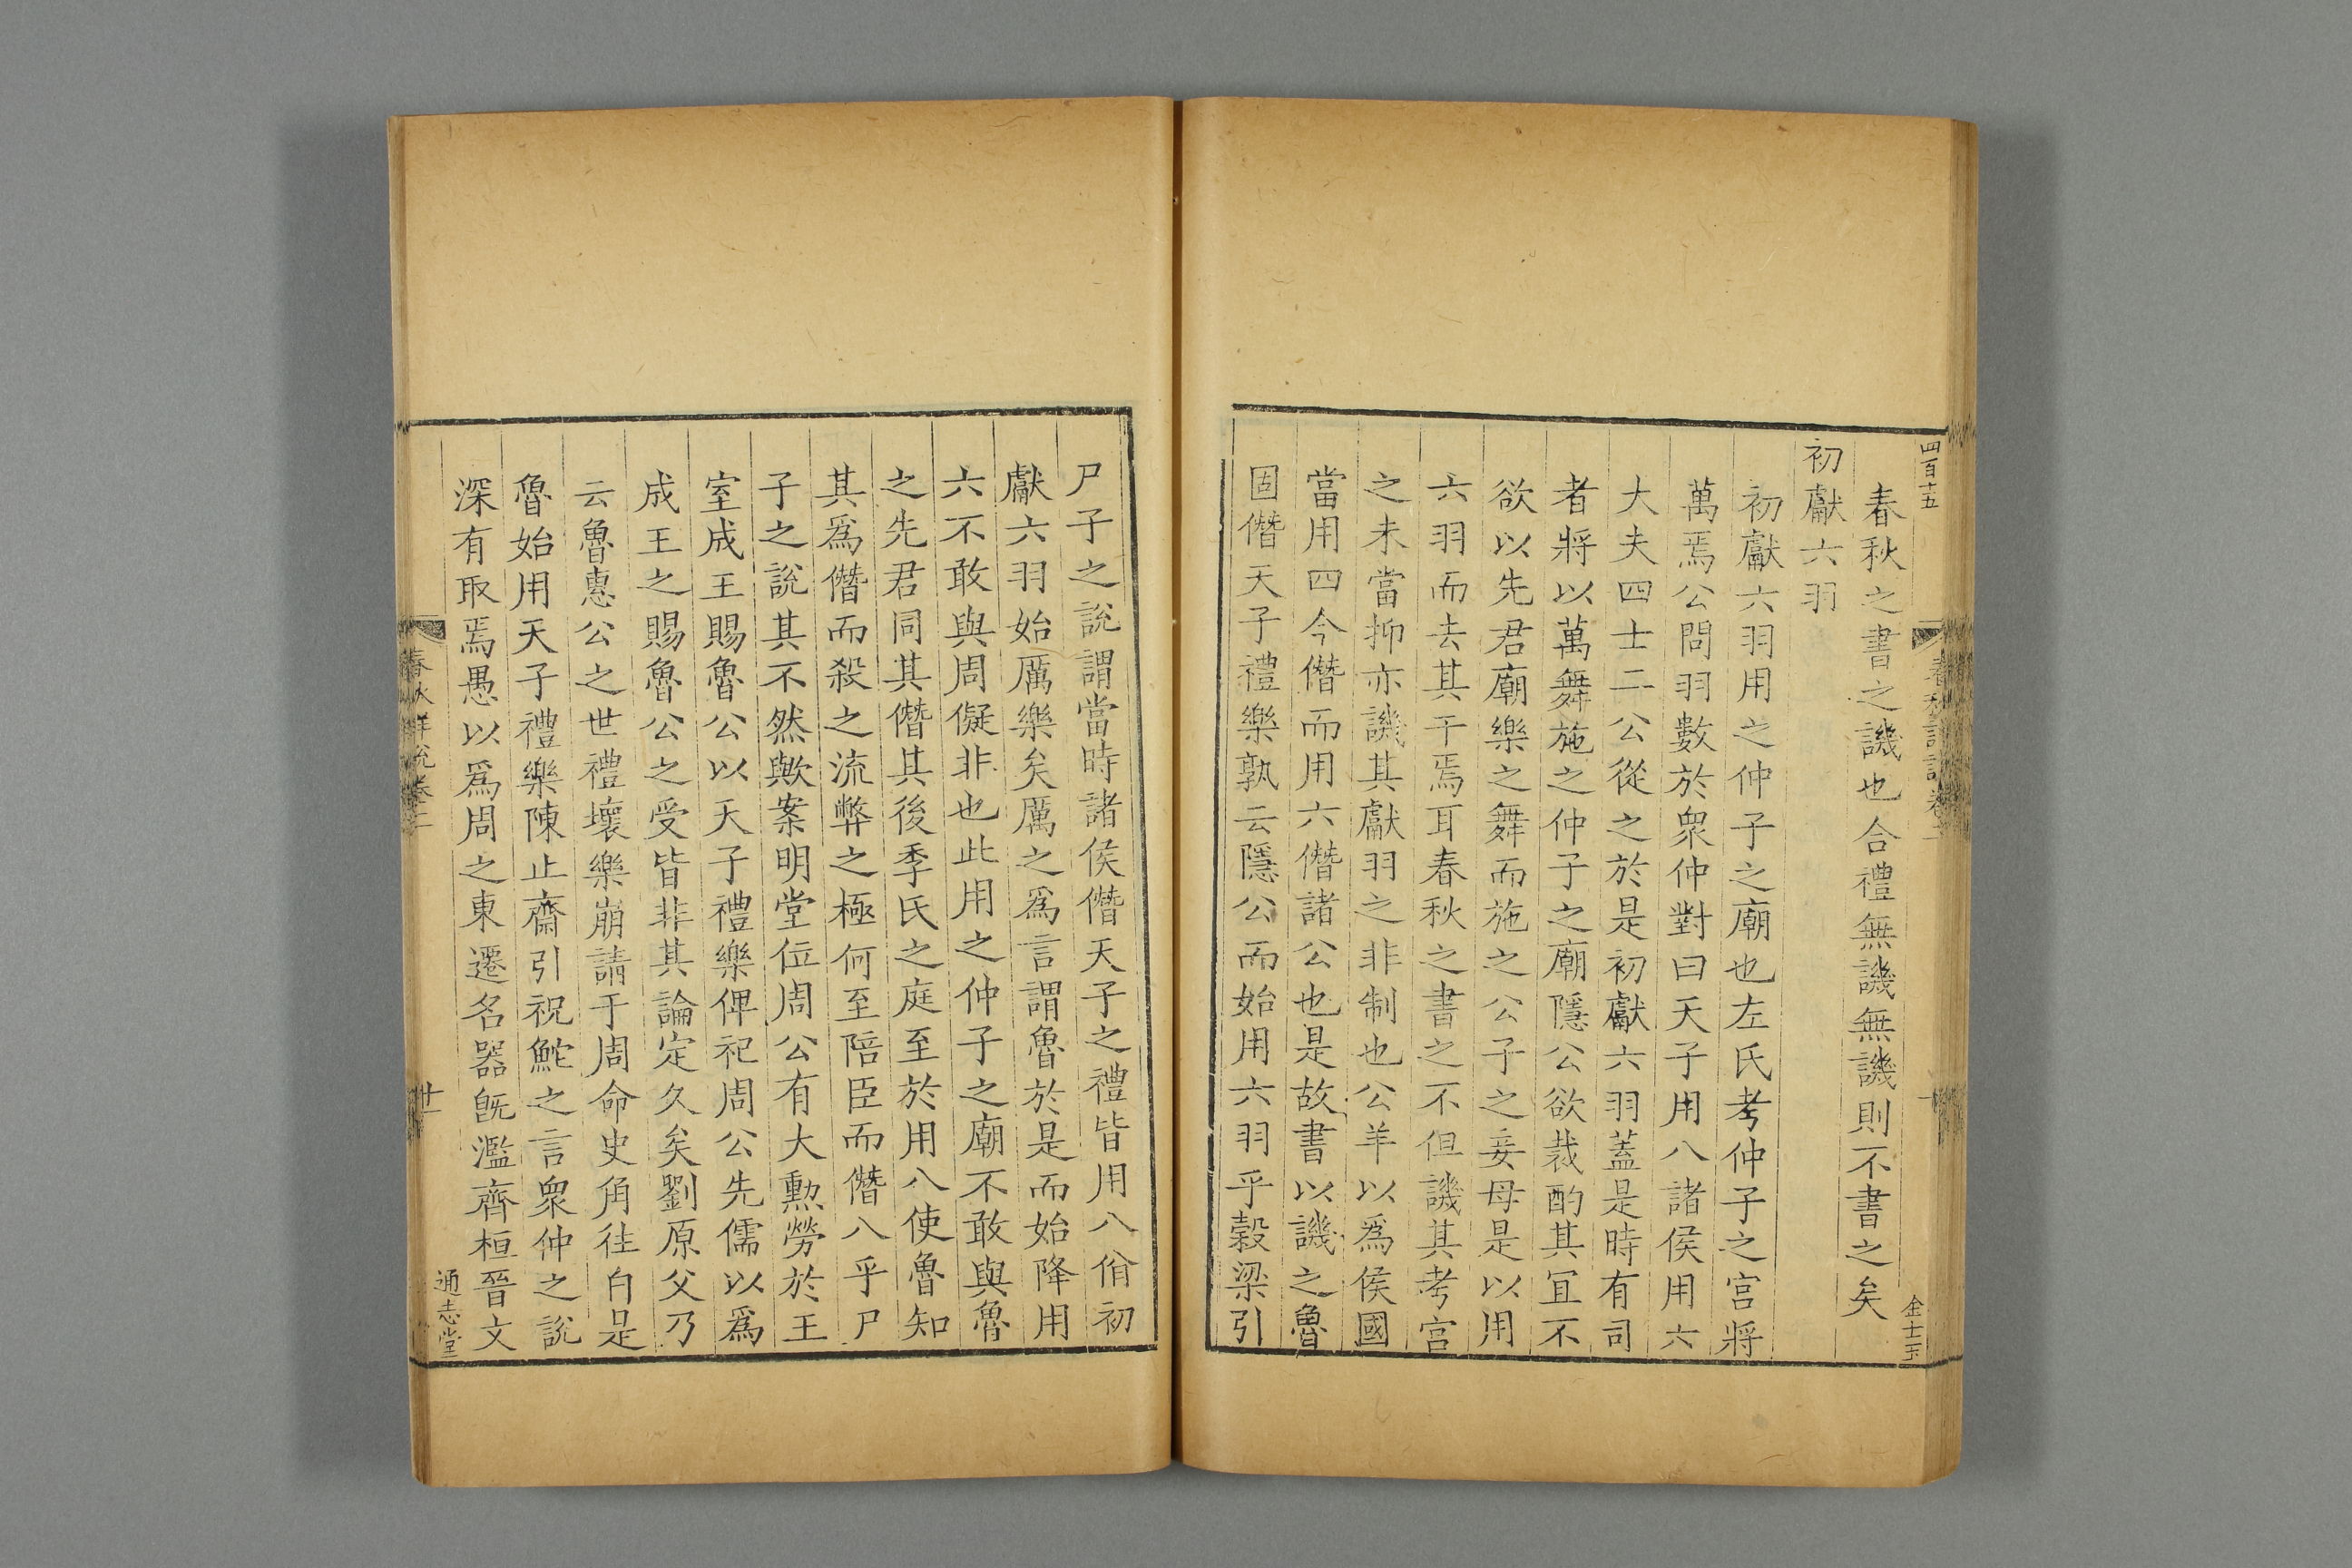 四百十五
春秋之書之譏也合禮無譏無譏則不書之矣
金士玉
初獻六羽
初獻六羽用之仲子之廟也左氏考仲子之宮將
萬焉公問羽數於衆仲對曰天子用八諸侯用六
大夫四士二公從之於是初獻六羽蓋是時有司
者將以萬舞施之仲子之廟隱公欲裁酌其宜不
欲以先君廟樂之舞而施之公子之妾母是以用
六羽而去其干焉耳春秋之書之不但譏其考宮
之未當抑亦譏其獻羽之非制也公羊以爲侯國
當用四今僭而用六僭諸公也是故書以譏之魯
固僭天子禮樂孰云隱公而始用六羽乎穀梁引
尸子之說謂當時諸侯僭天子之禮皆用八佾初
獻六羽始厲樂矣厲之爲言謂魯於是而始降用
六不敢與周儗非也此用之仲子之廟不敢與魯
之先君同其僭其後季氏之庭至於用八使魯知
其爲僭而殺之流弊之極何至陪臣而僭八乎尸
子之說其不然歟案明堂位周公有大勲勞於王
室成王賜魯公以天子禮樂俾祀周公先儒以爲
成王之賜魯公之受皆非其論定久矣劉原父乃
云魯惠公之世禮壞樂崩請于周命史角徃自是
魯始用天子禮樂陳止齋引祝鮀之言衆仲之說
深有取焉愚以爲周之東遷名器旣濫齊桓晉文
春秋詳說卷二
廿一
通志堂